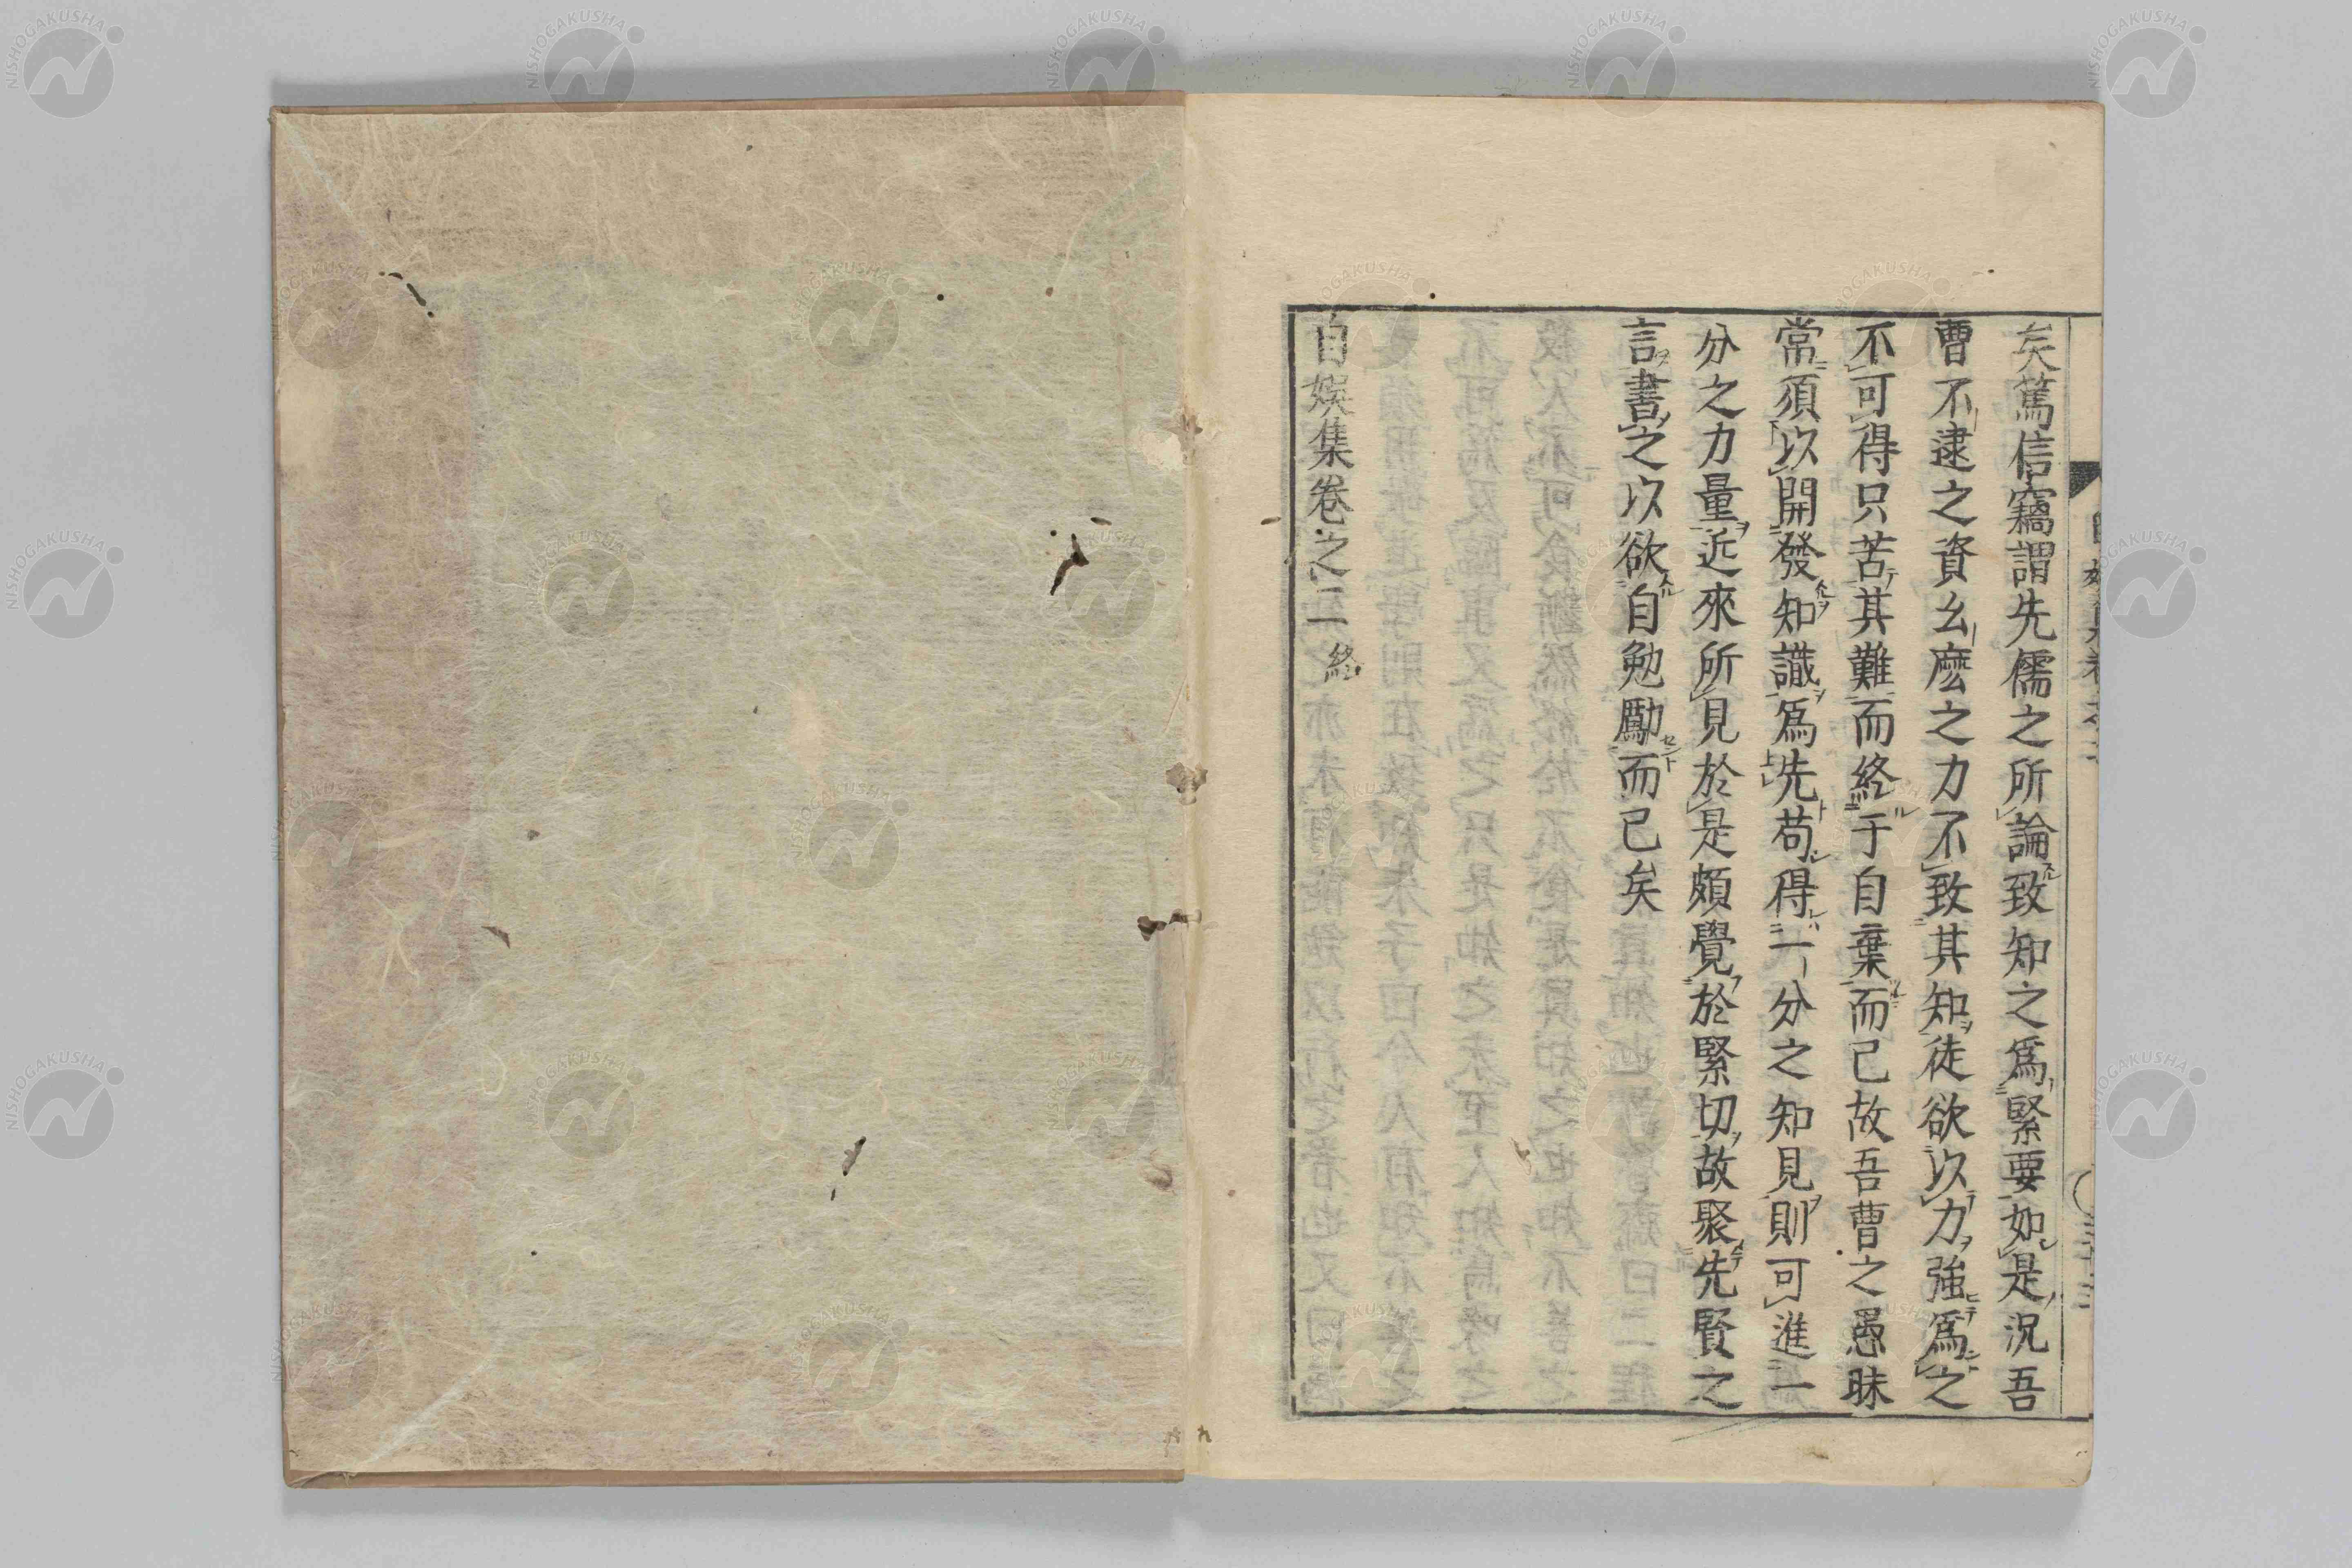 矣篤信竊謂先儒之所論致知之爲緊要如是況吾
曹不逮之資幺麼之力不致其知徒欲以力強爲之
不可得只苦其難而終于自棄而已故吾曹之愚昧
常須以開發知識爲先苟得一分之知見則可進一
分之力量近來所見於是頗覺於緊切故聚先賢之
言書之以欲自勉勵而已矣
自娯集卷之二終
NISHOGAKUSHA